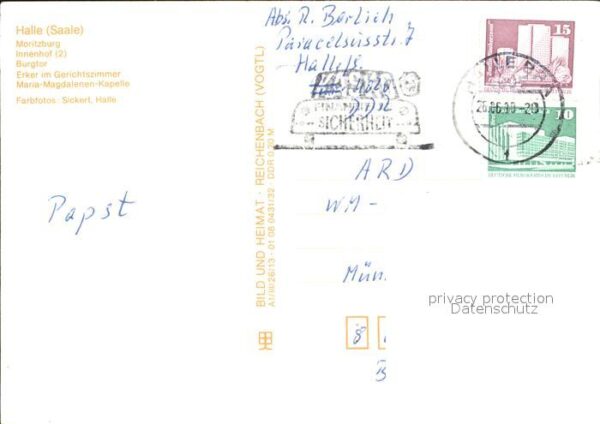 Halle (Saale)
Moritzburg
Innenhof (2)
Burgtor
Erker im Gerichtszimmer
Maria-Magdalenen-Kapelle
Farbfotos: Sickert, Halle
Papst
BILD UND HEIMAT · REICHENBACH (VOGTL)
A1/III/26/13 · 01 08 0431/32 DDR 0,20 M
Abs. R. Berlich
Paracelsusstr. 7
Halle/S.
4020
DDR
SICHERHEIT
15
26.06.90-20
10
ARD
WM-
Mün
8
privacy protection
Datenschutz